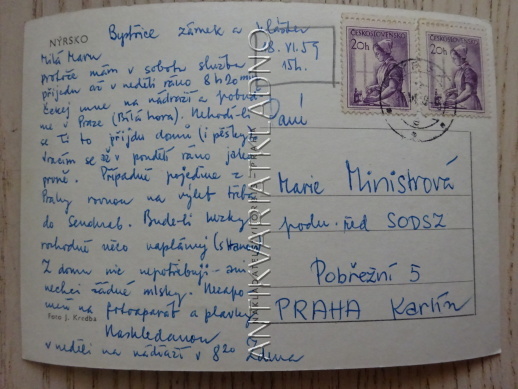 NÝRSKO
Bystřice zámek a klášter
Milá Maru
8. VI. 59
15h.
protože mám v sobotu službu
přijedu až v neděli ráno 8h20min
čekej mne na nádraží a
me v Praze (Bílá hora). Nehodí-li
se Ti to přijdu domů (i pěšky)
vracím se až v pondělí ráno
Případně pojedeme z
Prahy rovnou na výlet třeba
do Bude-li hezky
rozhodně něco naplánuj
Z domu nic nepotřebuji - ani
nechci žádné mlsky. Nezapo-
meň na fotoaparát a plavky
Nashledanou
v neděli na nádraží v 8²⁰ Zdena
Foto J. Kredba
ČESKOSLOVENSKO
20h
ČESKOSLOVENSKO
20h
Paní
Marie Ministrová
podn. řed SODSZ
Pobřežní 5
PRAHA Karlín
ANTIKVARIAT-KLADNO